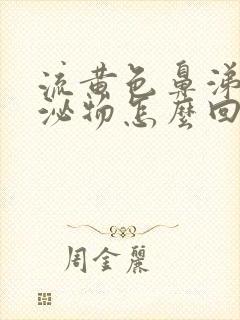 流黄色鼻涕
泌物怎麼回
周金麗